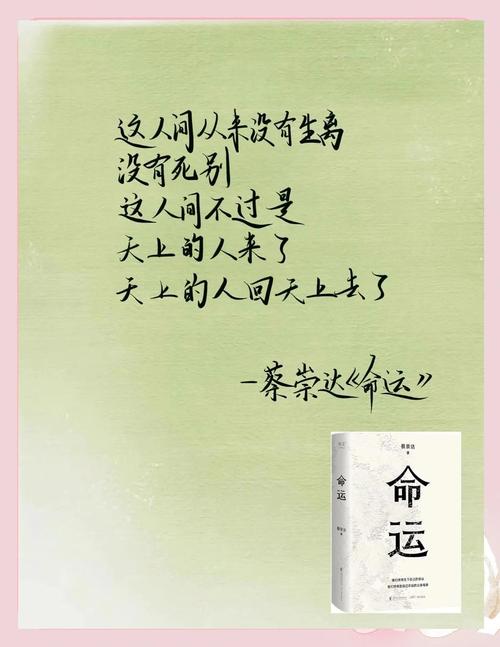 这人间从来没有生离
没有死别
这人间不过是
天上的人来了
天上的人回天上去了
—蔡崇达《命运》
命运
蔡崇达
著
命
运